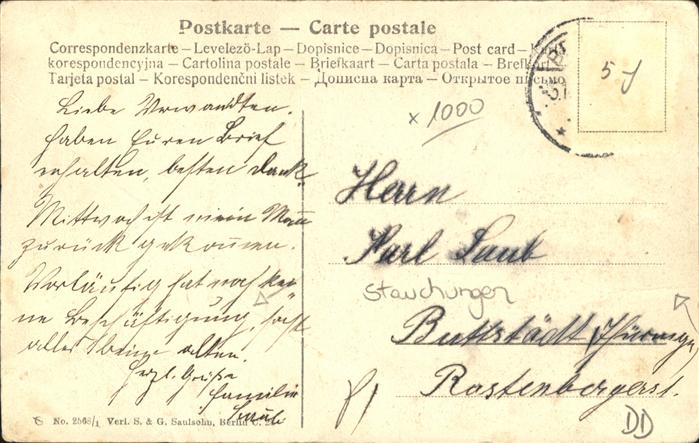 Postkarte — Carte postale
Correspondenzkarte – Levelező-Lap – Dopisnice – Dopisnica – Post card –
korespondencyjna – Cartolina postale – Briefkaart – Carta postala –
Tarjeta postal – Korespondenční listek – Дописна карта – Открытое письмо
5 J
x 1000
Liebe Verwandten.
haben Euren Brief
erhalten, besten Dank.
Mittwoch ist mein Mann
zurück gekommen.
Vorläufig hat noch kei
ne Beschäftigung, sonst
alles beim alten.
Herzl. Grüße
Familie
Laub
Herrn
Karl Laub
Stauchungen
Buttstädt Thüringen
Rastenbergerst.
DD
No. 2568/1 Verl. S. & G. Saulsohn, Berlin C. 2